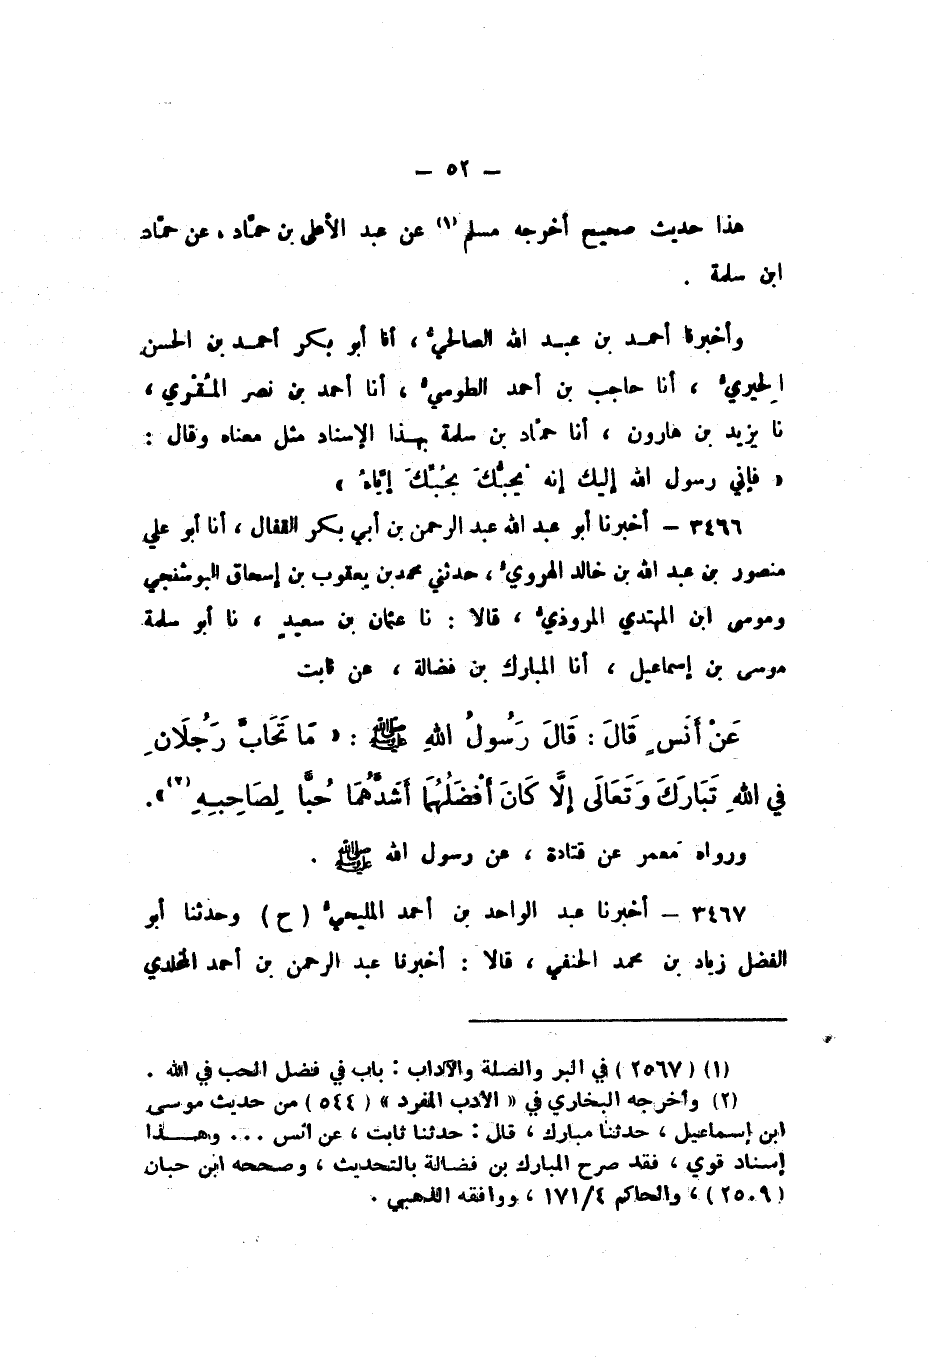 — ٥٢ —
هذا حديث صحيح أخرجه مسلم (١) عن عبد الأعلى بن حمّاد ، عن حمّاد
ابن سلمة .
وأخبرنا أحمد بن عبد الله الصالحيُّ ، أنا أبو بكر أحمد بن الحسن
الحِيريُّ ، أنا حاجب بن أحمد الطوسيُّ ، أنا أحمد بن نصر المُقْري ،
نا يزيد بن هارون ، أنا حمّاد بن سلمة بهذا الإسناد مثل معناه وقال :
« فإني رسول الله إليك إنه يُحِبُّكَ بِحُبِّكَ إيّاهُ »
٣٤٦٦ — أخبرنا أبو عبد الله عبد الرحمن بن أبي بكر القفال ، أنا أبو علي
منصور بن عبد الله بن خالد الهرويُّ ، حدثني محمد بن يعقوب بن إسحاق البوشنجي
وموسى ابن المهتدي المروذيُّ ، قالا : نا عثمان بن سعيدٍ ، نا أبو سلمة
موسى بن إسماعيل ، أنا المبارك بن فضالة ، عن ثابت
عَنْ أَنَسٍ قَالَ : قَالَ رَسُولُ اللهِ ﷺ : « مَا تَحَابَّ رَجُلَانِ
فِي اللهِ تَبَارَكَ وَتَعَالَى إِلَّا كَانَ أَفْضَلُهُمَا أَشَدُّهُمَا حُبًّا لِصَاحِبِهِ (٢) » .
ورواه مَعمر عن قتادة ، عن رسول الله ﷺ .
٣٤٦٧ — أخبرنا عبد الواحد بن أحمد المليحيُّ ( ح ) وحدثنا أبو
الفضل زياد بن محمد الحنفي ، قالا : أخبرنا عبد الرحمن بن أحمد المخلدي
(١) ( ٢٥٦٧ ) في البر والصلة والآداب : باب في فضل الحب في الله .
(٢) وأخرجه البخاري في « الأدب المفرد » ( ٥٤٤ ) من حديث موسى
ابن إسماعيل ، حدثنا مبارك ، قال : حدثنا ثابت ، عن أنس ... وهـــذا
إسناد قوي ، فقد صرح المبارك بن فضالة بالتحديث ، وصححه ابن حبان
( ٢٥٠٩ ) ، والحاكم ١٧١/٤ ، ووافقه الذهبي .